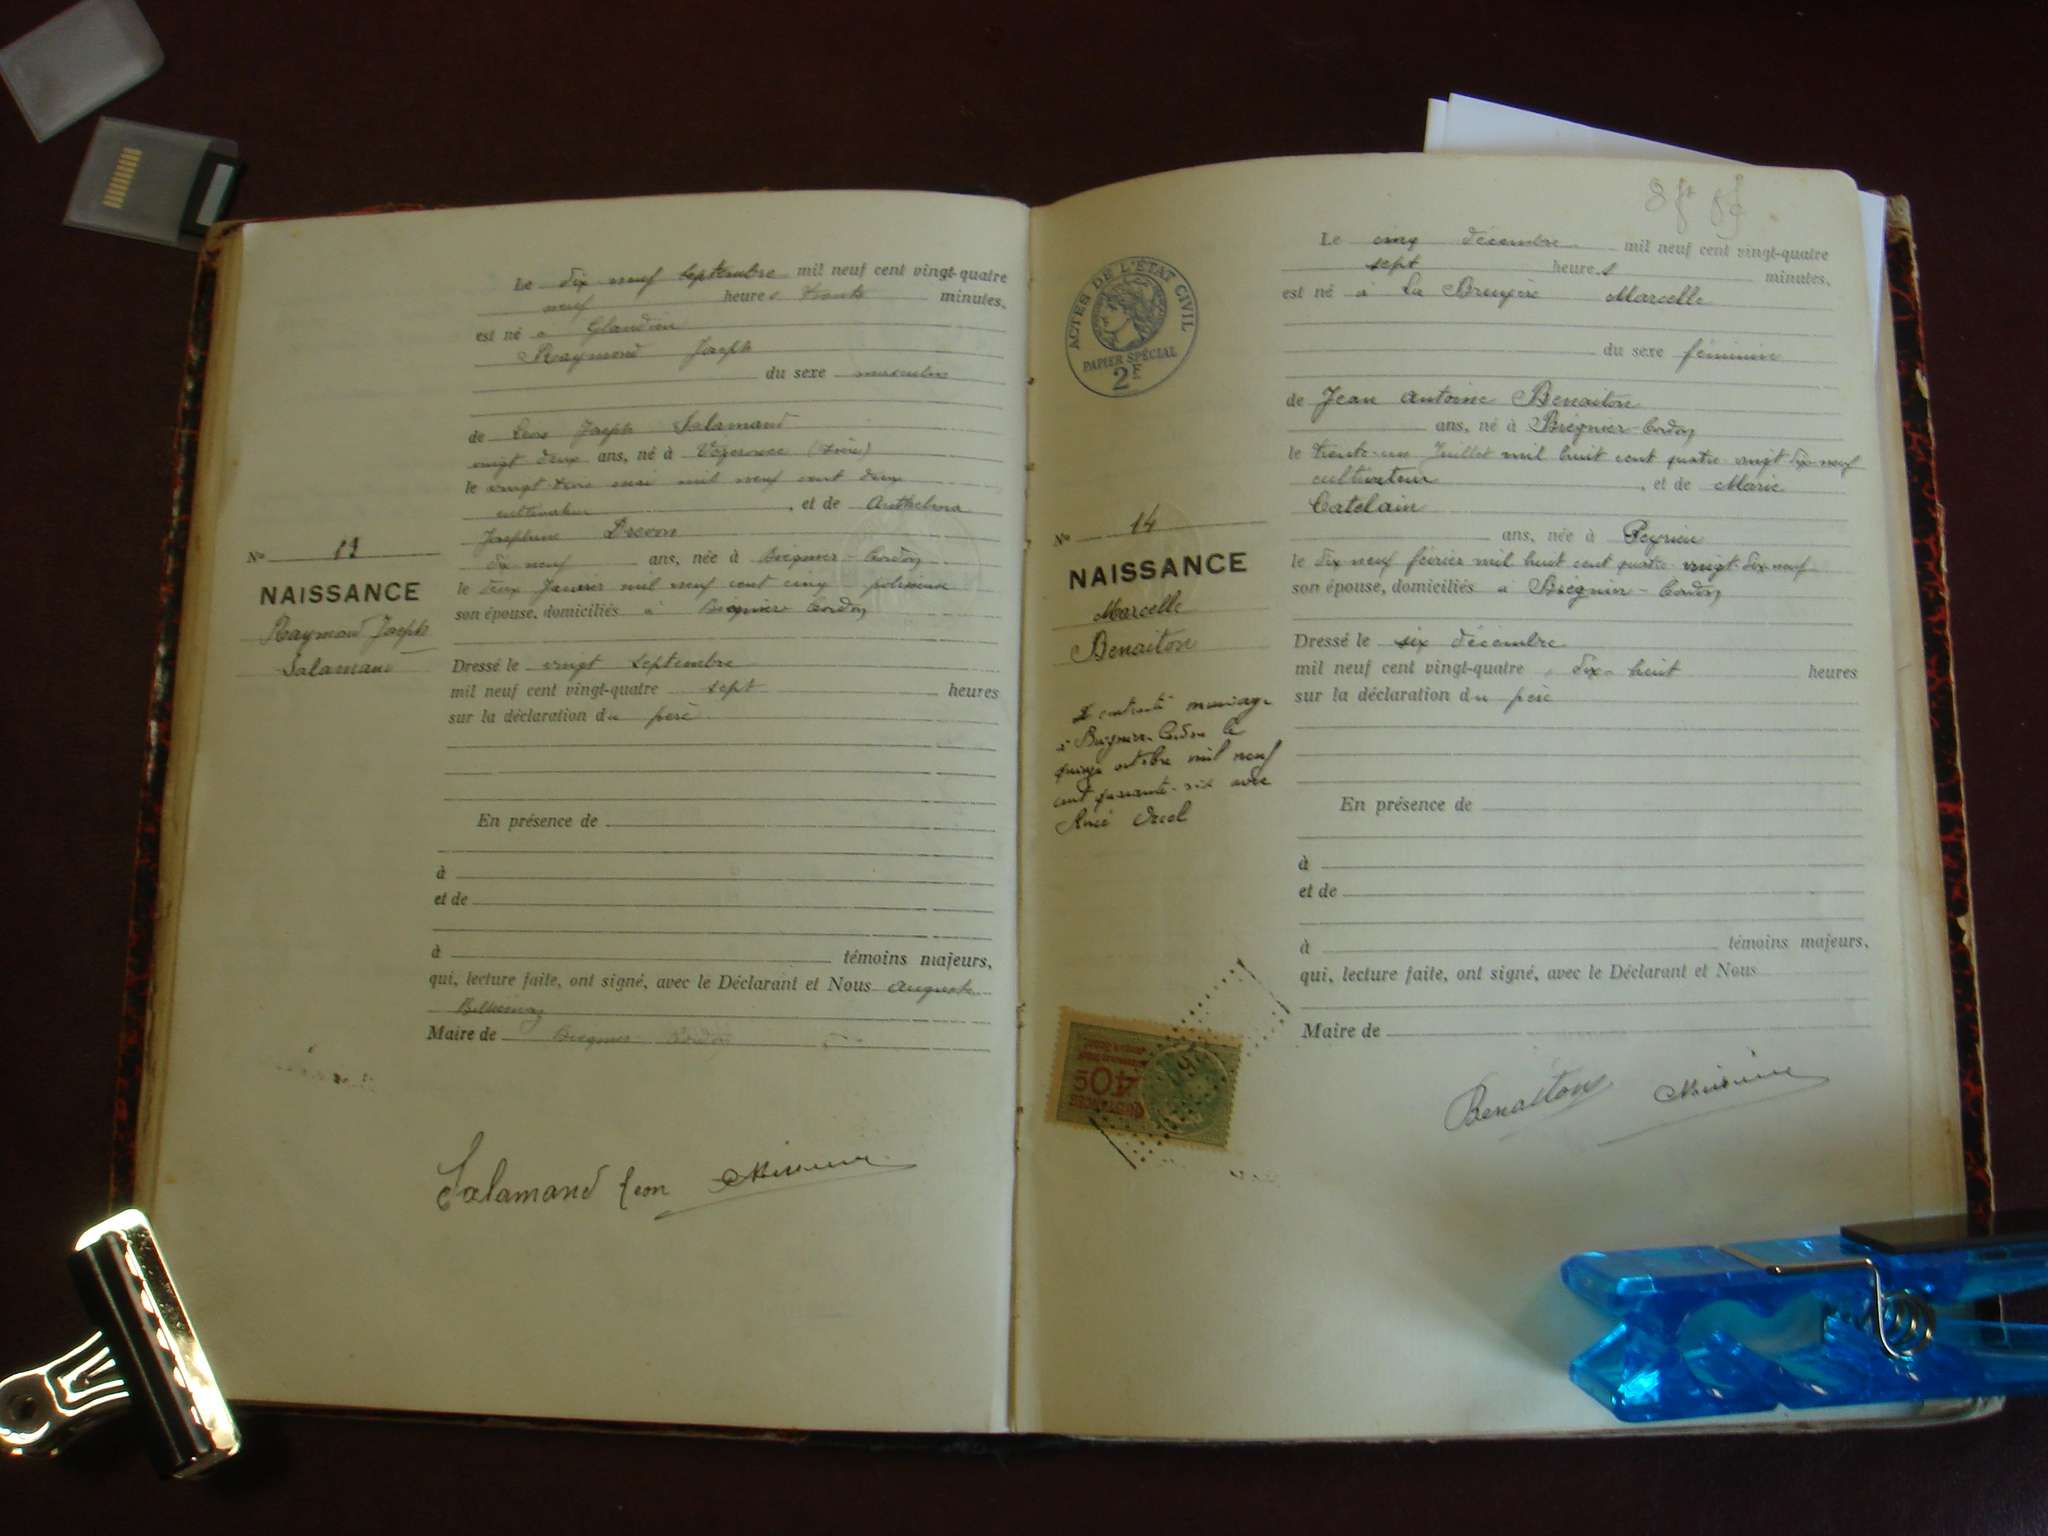 Le dix neuf Septembre mil neuf cent vingt-quatre
neuf heures trente minutes.
est né à Glandieu
Raymond Joseph
du sexe masculin
de Léon Joseph Salamand
vingt deux ans, né à Vézeronce (Isère)
le vingt trois mai mil neuf cent deux
cultivateur, et de Anthelma
Joséphine Drevon
dix neuf ans, née à Brégnier-Cordon
le deux Janvier mil neuf cent cinq
son épouse, domiciliés à Brégnier Cordon
No 13
NAISSANCE
Raymond Joseph
Salamand
Dressé le vingt septembre
mil neuf cent vingt-quatre sept heures
sur la déclaration du père
En présence de
à
et de
à témoins majeurs,
qui, lecture faite, ont signé, avec le Déclarant et Nous Auguste
Maire de Brégnier Cordon
Salamand Léon
ACTES DE L'ÉTAT CIVIL
PAPIER SPÉCIAL
2F
Le cinq décembre mil neuf cent vingt-quatre
sept heures minutes,
est né à La Bruyère Marcelle
du sexe féminin
de Jean Antoine Benaiton
ans, né à Brégnier-Cordon
le trente-un Juillet mil huit cent quatre-vingt-dix-neuf
cultivateur, et de Marie
Catelain
ans, née à Peyrieu
le dix neuf février mil huit cent quatre-vingt-dix-neuf
son épouse, domiciliés à Brégnier-Cordon
No 14
NAISSANCE
Marcelle
Benaiton
A contracté mariage
à Brégnier-Cordon le
quinze octobre mil neuf
cent quarante-six avec
René
Dressé le six décembre
mil neuf cent vingt-quatre, dix-huit heures
sur la déclaration du père
En présence de
à
et de
à témoins majeurs,
qui, lecture faite, ont signé, avec le Déclarant et Nous
Maire de
Benaiton
QUITTANCES
40c